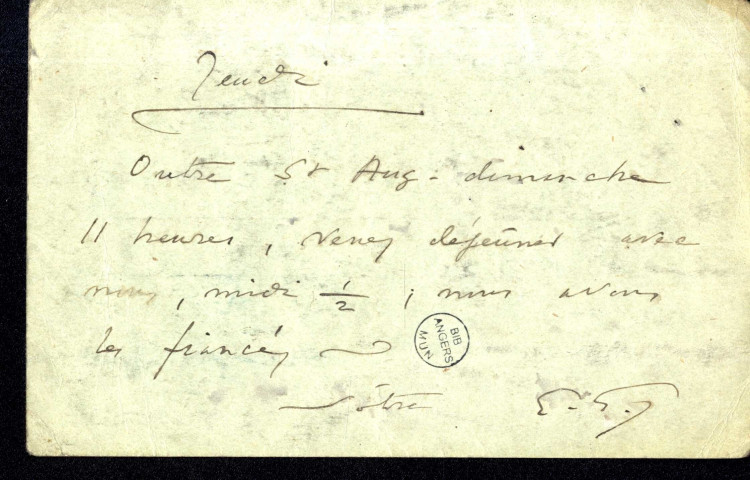 Jeudi
Outre St Aug - dimanche
11 heures, venez déjeuner avec
nous, midi 1/2 ; nous avons
les fiancés
BIB
ANGERS
MUN
Vôtre E. G.